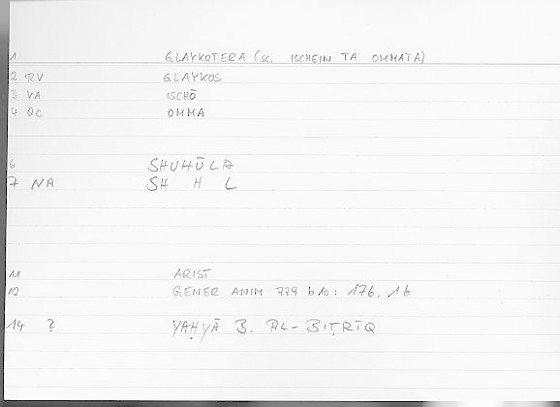 1 GLAYKOTERA (SC. ISCHEIN TA OMMATA)
2 RV GLAYKOS
3 VA ISCHŌ
4 OC OMMA
6 SHUHŪLA
7 NA SH H L
11 ARIST
12 GENER ANIM 779 b10: 176, 16
14 ? YAḤYĀ B. AL-BIṬRĪQ